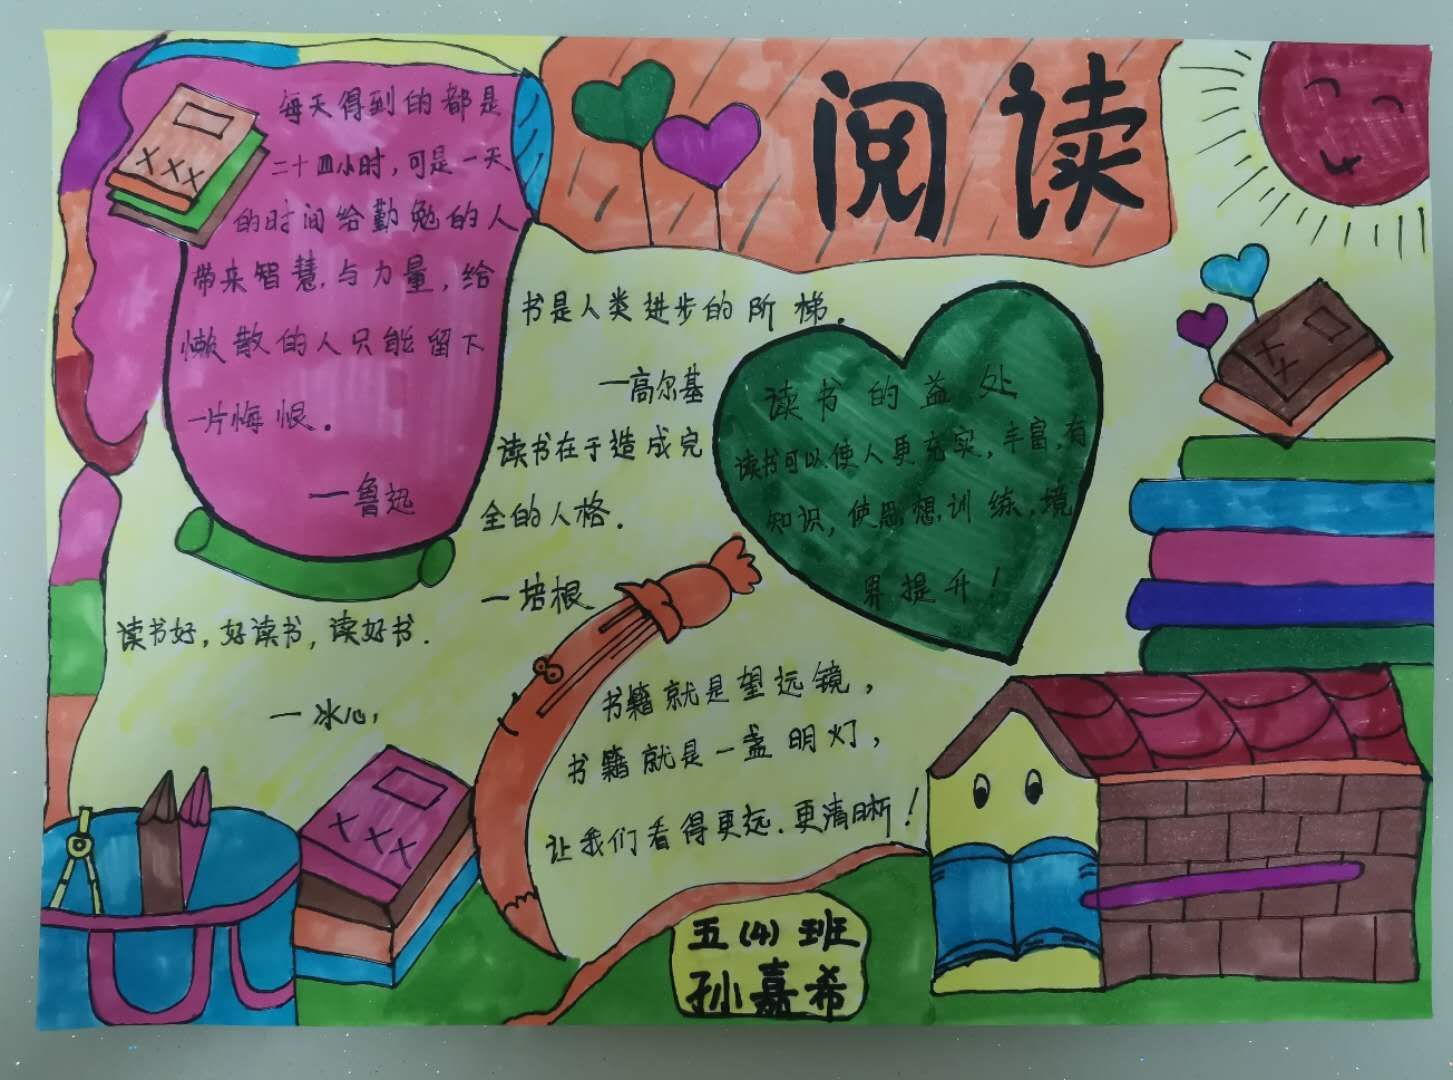 阅读
每天得到的都是
二十四小时，可是一天
的时间给勤勉的人
带来智慧与力量，给
懒散的人只能留下
一片悔恨。
—鲁迅
书是人类进步的阶梯。
—高尔基
读书在于造成完
全的人格。
—培根
读书的益处
读书可以使人更充实，丰富，有
知识，使思想训练，境
界提升！
读书好，好读书，读好书．
—冰心
书籍就是望远镜，
书籍就是一盏明灯，
让我们看得更远．更清晰！
五(4)班
孙嘉希
XXX
XX
XXX